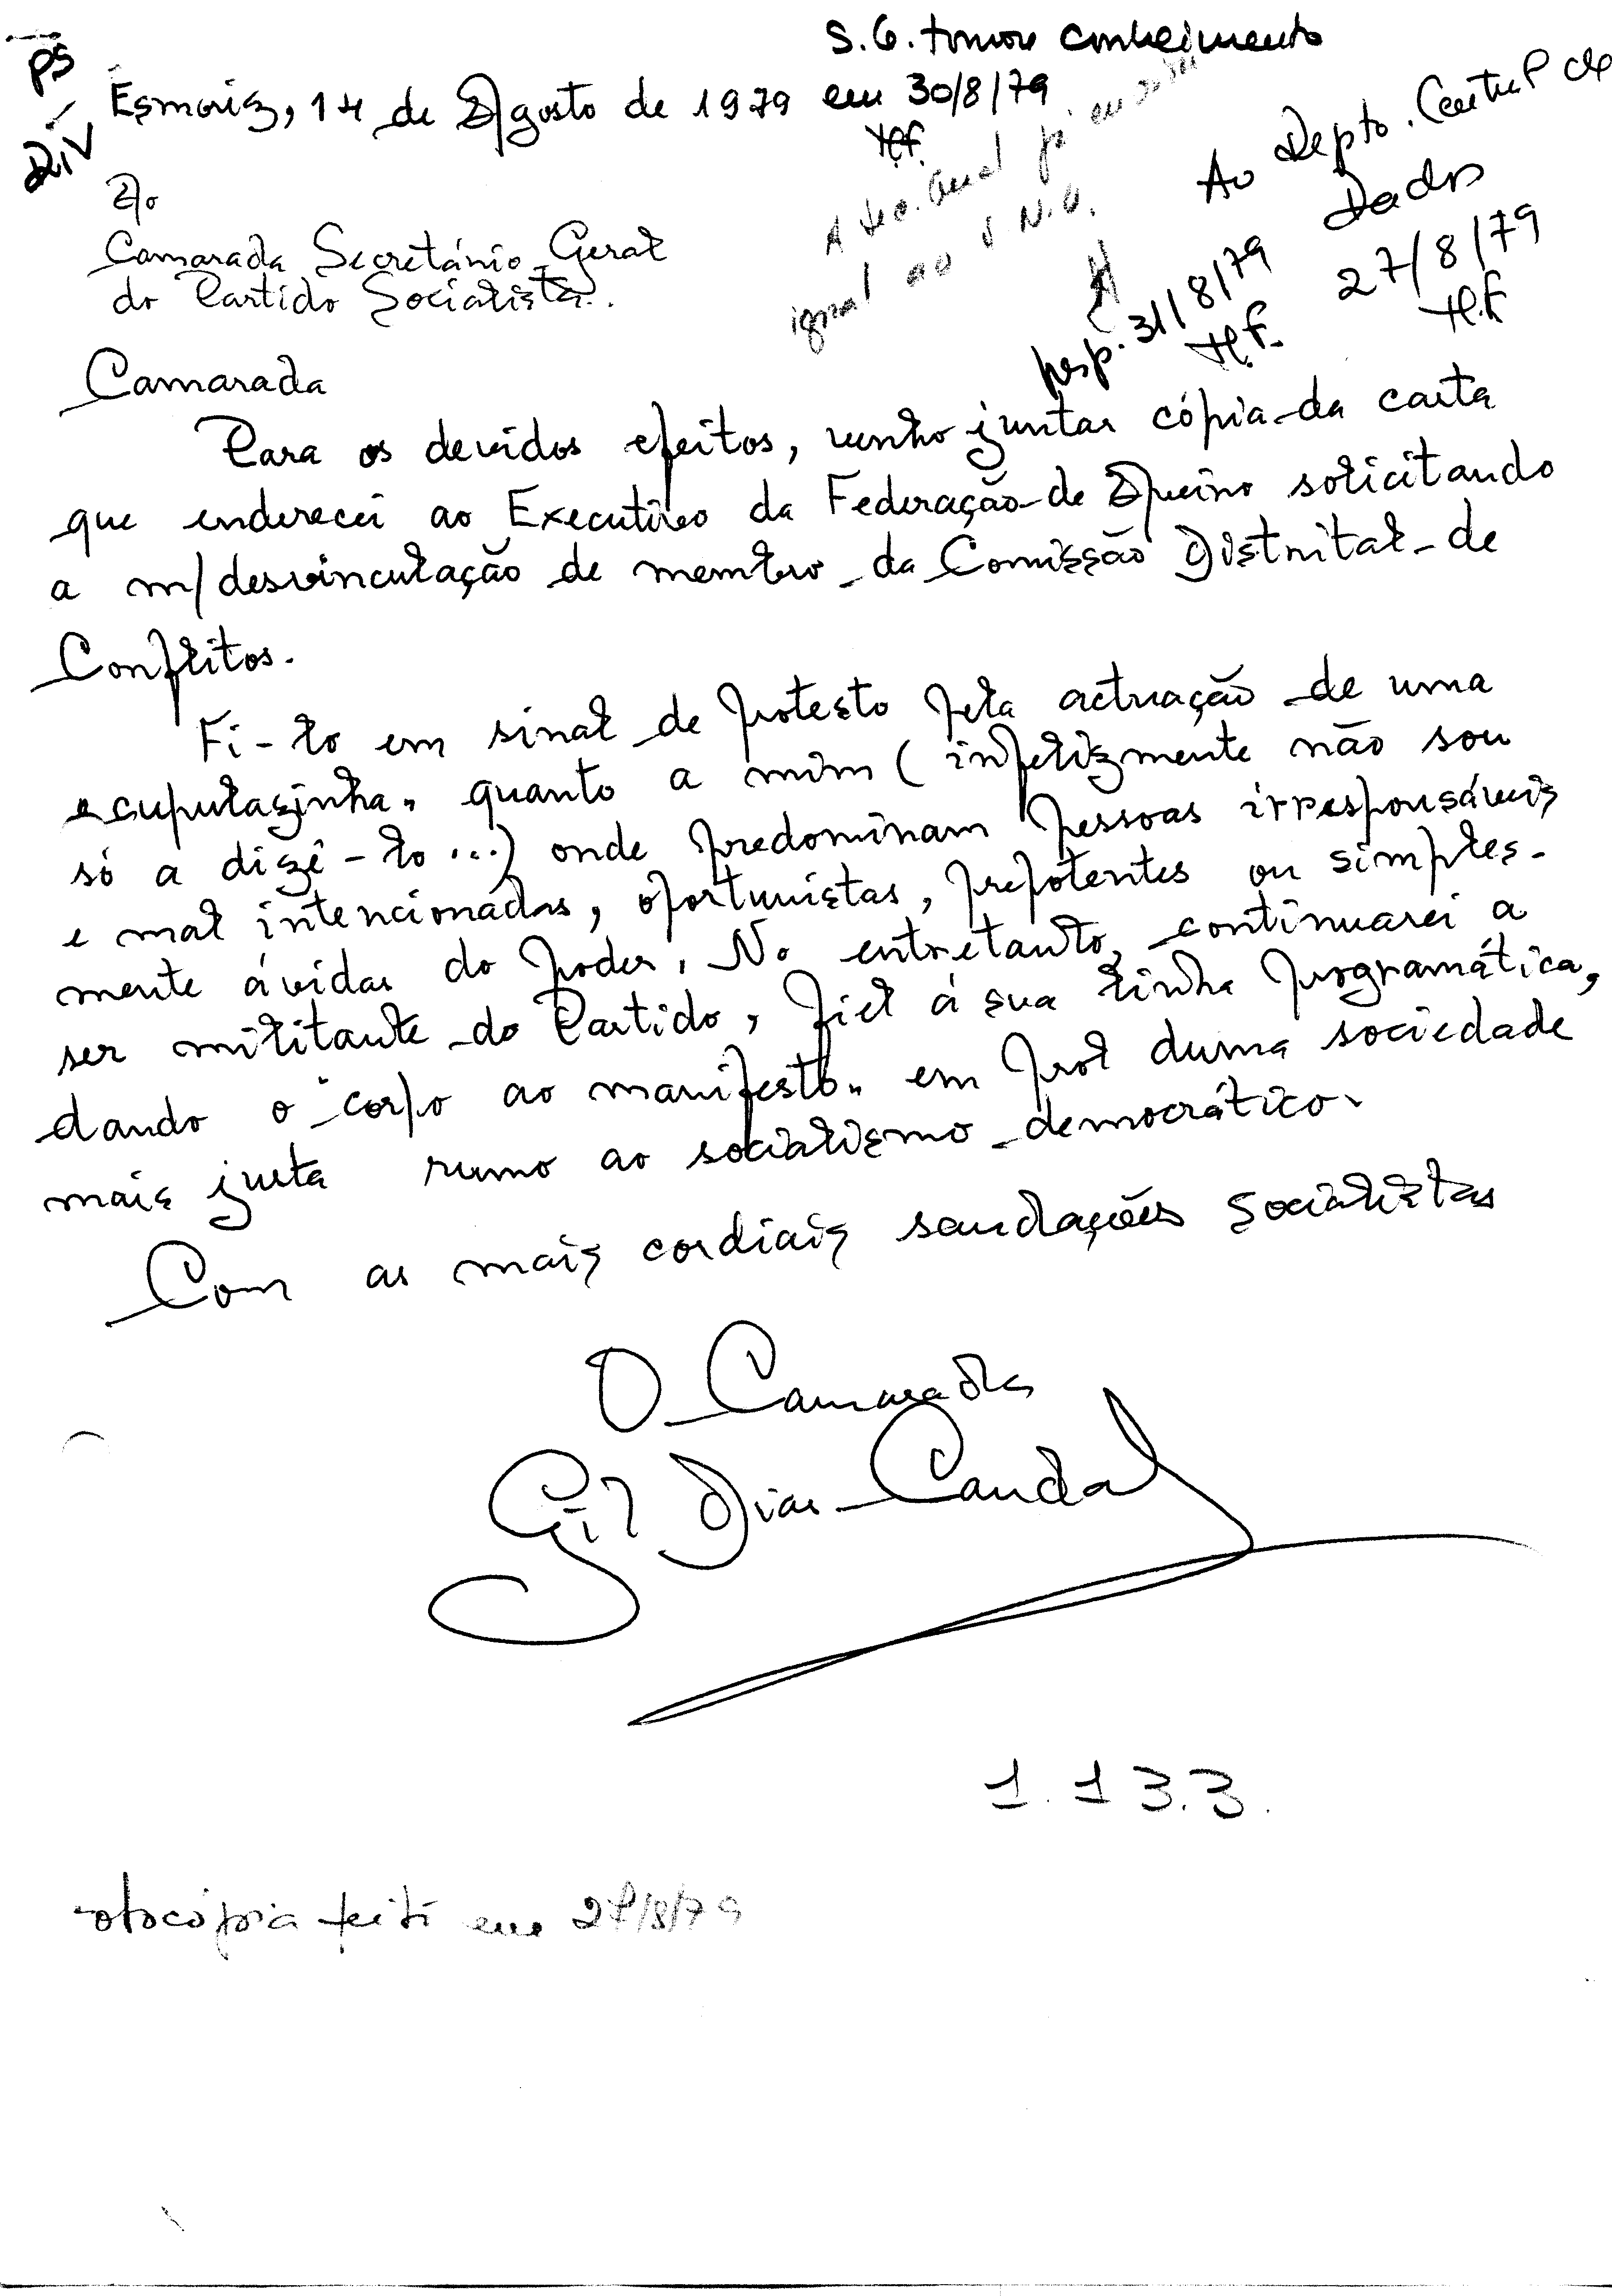 PS
DIV
S.G. tomou conhecimento
em 30/8/79
H.F.
Esmoriz, 14 de Agosto de 1979
Ao
Camarada Secretário Geral
do Partido Socialista.
Ao Depto. Central de
Dados
27/8/79
H.F.
A Sec. Geral já
igual ao
resp. 31/8/79
H.F.
Camarada
Para os devidos efeitos, venho juntar cópia da carta
que enderecei ao Executivo da Federação de Aveiro solicitando
a m/desvinculação de membro da Comissão Distrital de
Conflitos.
Fi-lo em sinal de protesto pela actuação de uma
"cupulazinha" quanto a mim (infelizmente não sou
só a dizê-lo...) onde predominam pessoas irresponsáveis
e mal intencionadas, oportunistas, prepotentes ou simples-
mente ávidas do poder. No entretanto, continuarei a
ser militante do Partido, fiel á sua linha programática,
dando o "corpo ao manifesto" em prol duma sociedade
mais justa rumo ao socialismo democrático.
Com as mais cordiais saudações socialistas
O Camarada
Gil Dias Candal
1.13.3.
otocópia feita em 27/8/79